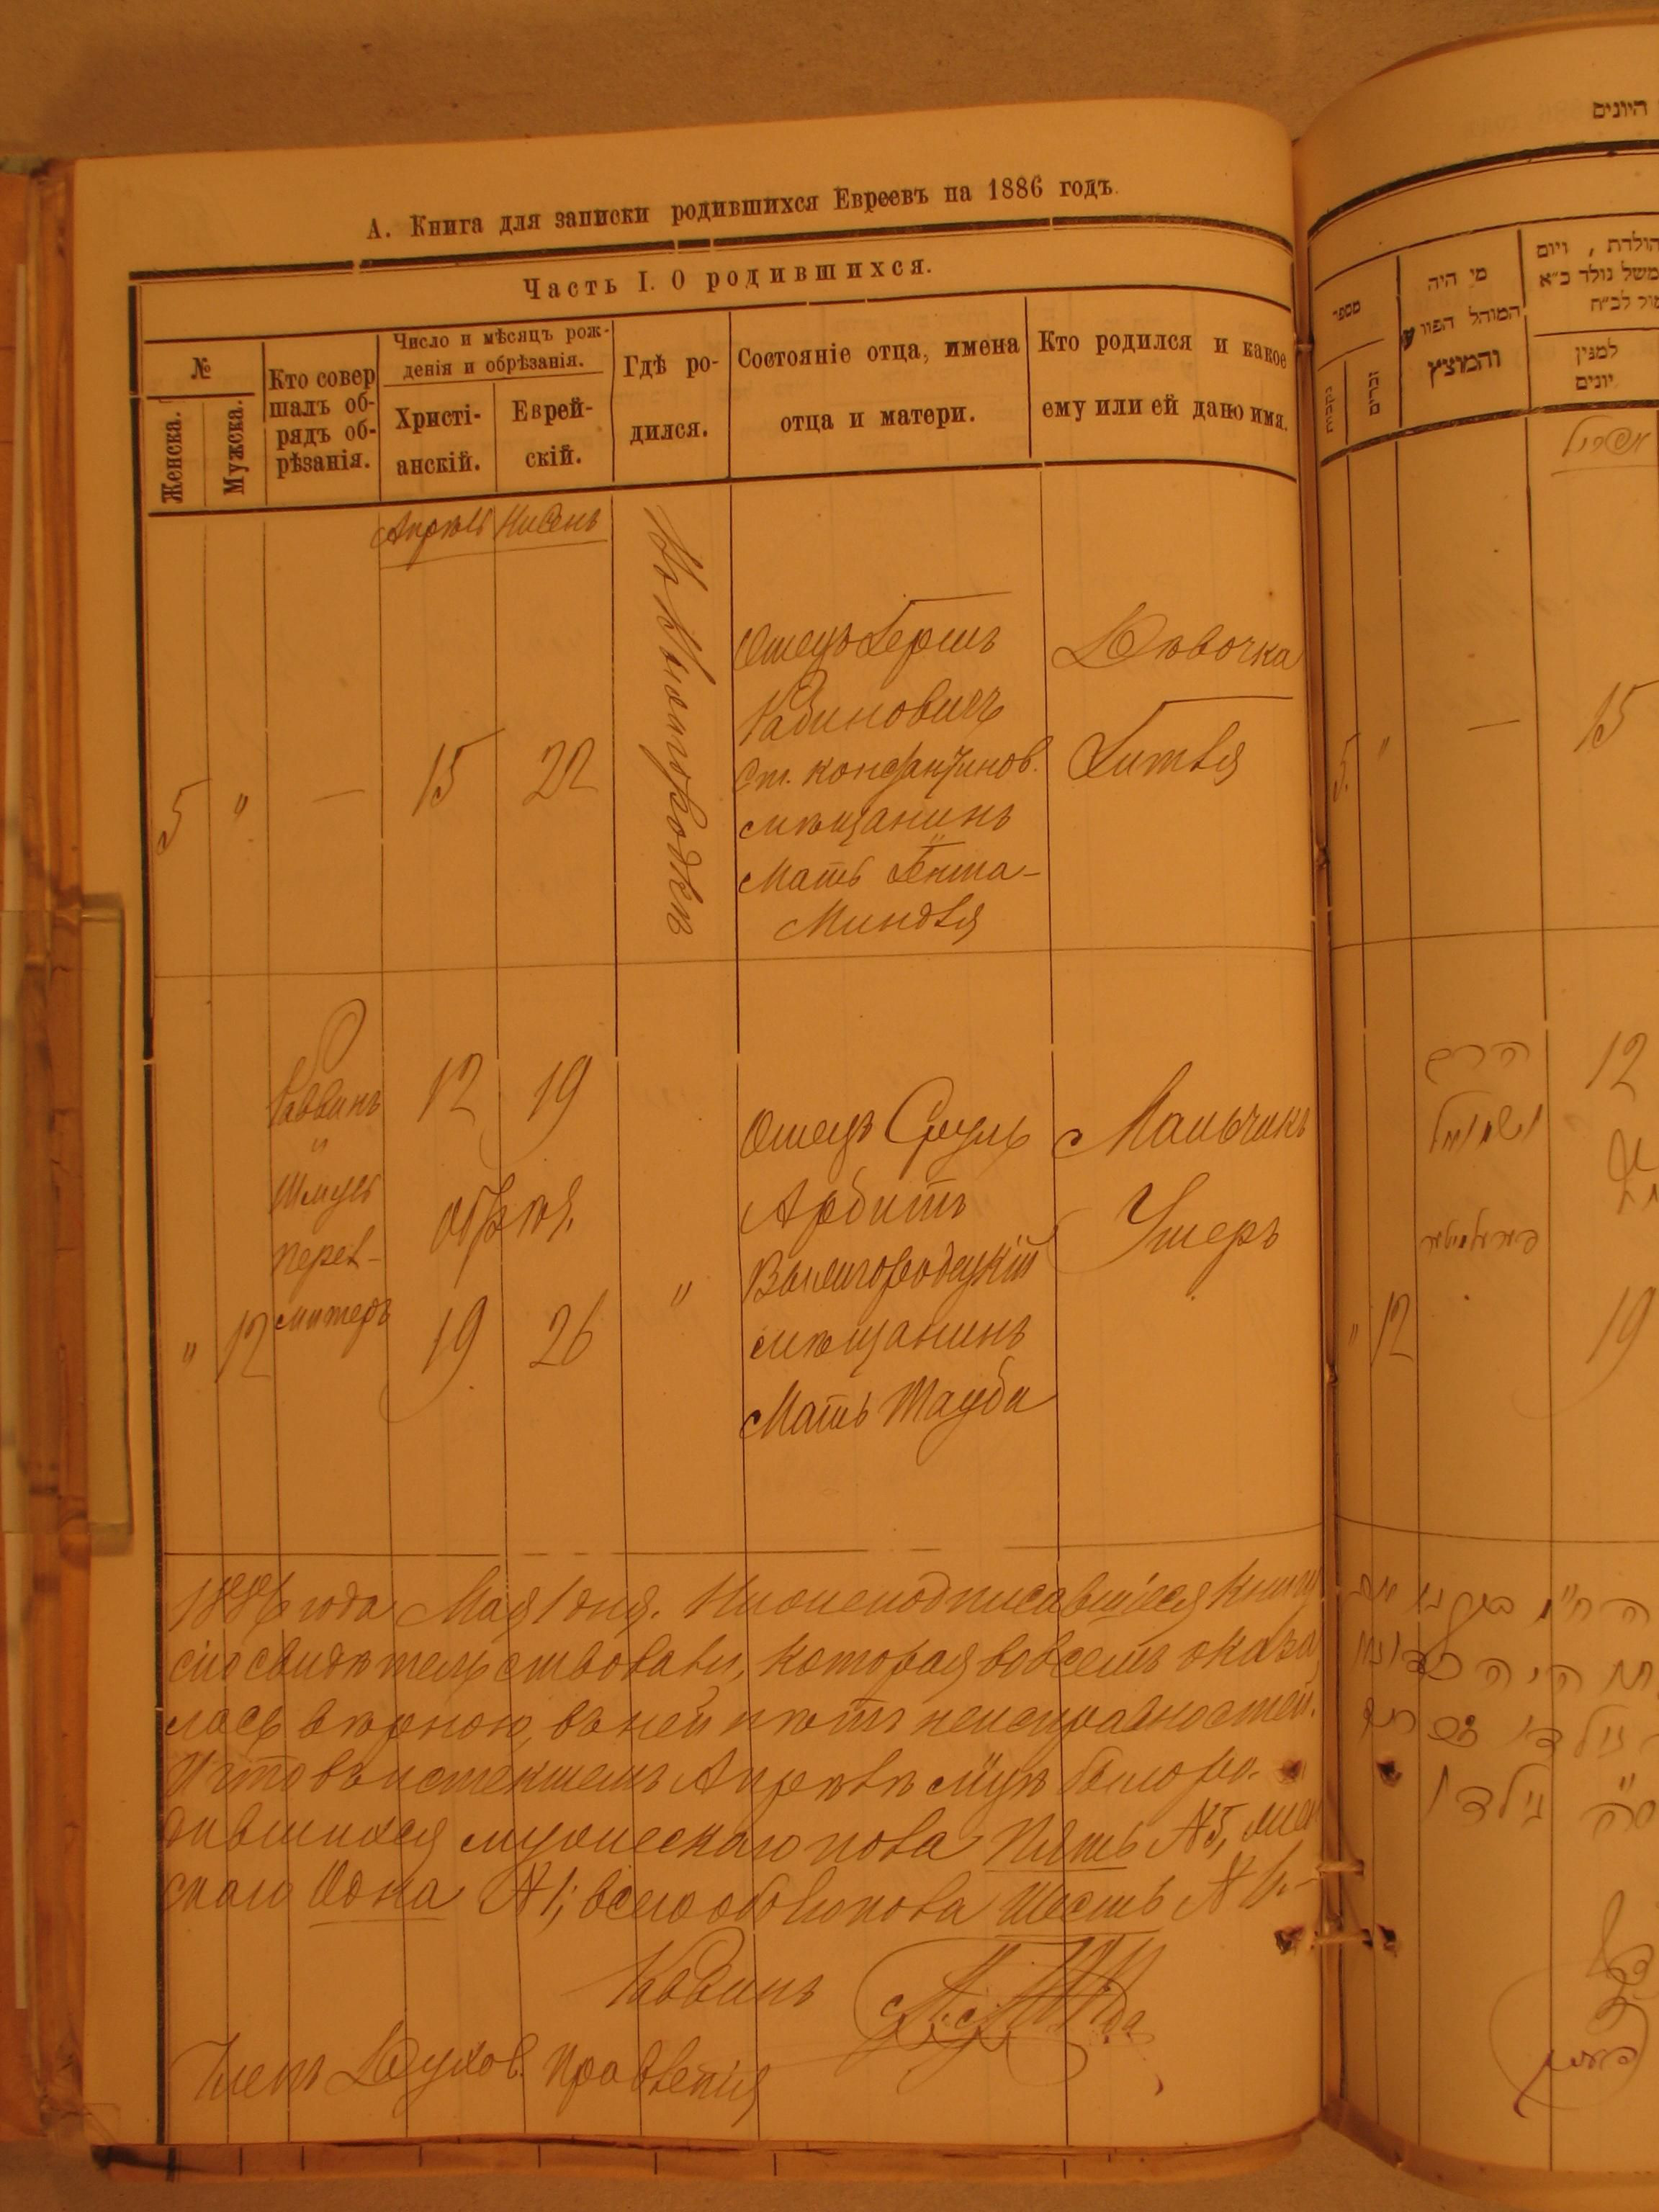 А. Книга для записки родившихся Евреевъ на 1886 годъ.
Часть I. О родившихся.
№
Женска.
Мужска.
Кто совер
шалъ об-
рядъ об-
рѣзанія.
Число и мѣсяцъ рож-
денія и обрѣзанія.
Христі-
анскій.
Еврей-
скій.
Гдѣ ро-
дился.
Состояніе отца, имена
отца и матери.
Кто родился и какое
ему или ей дано имя.
Апрѣль Нисень
5 " — 15 22
Отецъ Гершъ
Рабиновичъ
Ст. константинов.
мѣщанинъ
Мать Бента-
Миндля
Дѣвочка
Гитля
" 12
Раввинъ
и
Шмуль
Перел-
митеръ
12 19
обрѣз.
19 26
"
Отецъ Сруль
Арбитъ
Вышгородецкій
мѣщанинъ
Мать Тауба
Мальчикъ
Ушеръ
1886 года Мая 1 дня. Нижеподписавшіеся книгу
сію свидѣтельствовали, которая вовсемъ оказа
лась вѣрною, въ ней нѣтъ неисправностей.
И что въ истекшемъ Апрѣлѣ м-цѣ было ро-
дившихся мужескаго пола Пять №5, жен
скаго Одна №1; всего обоего пола Шесть № 6.-
Раввинъ
Членъ Духов. Правленія
היונים
מספר
נקבות
זכרים
מי היה
המוהל הפורע
והמוצץ
הולדת , ויום
למשל נולד כ״א
מול לכ״ח
למנין
יונים
אפריל
5 " — 15
הרב
ושמואל
12
" 12 19